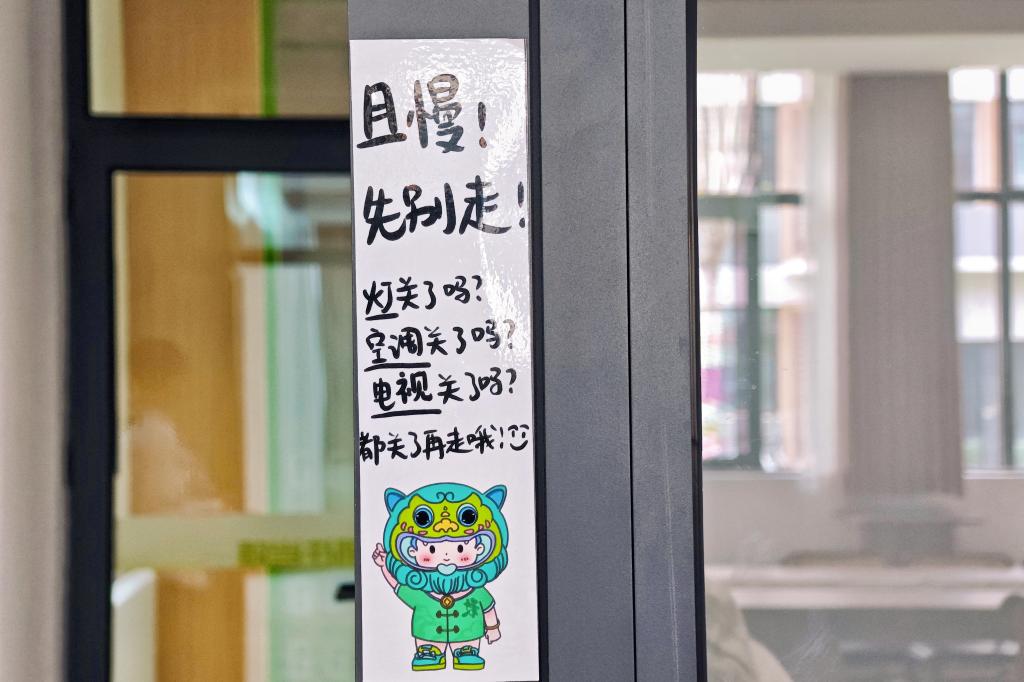 且慢!
先别走!
灯关了吗?
空调关了吗?
电视关了吗?
都关了再走哦!